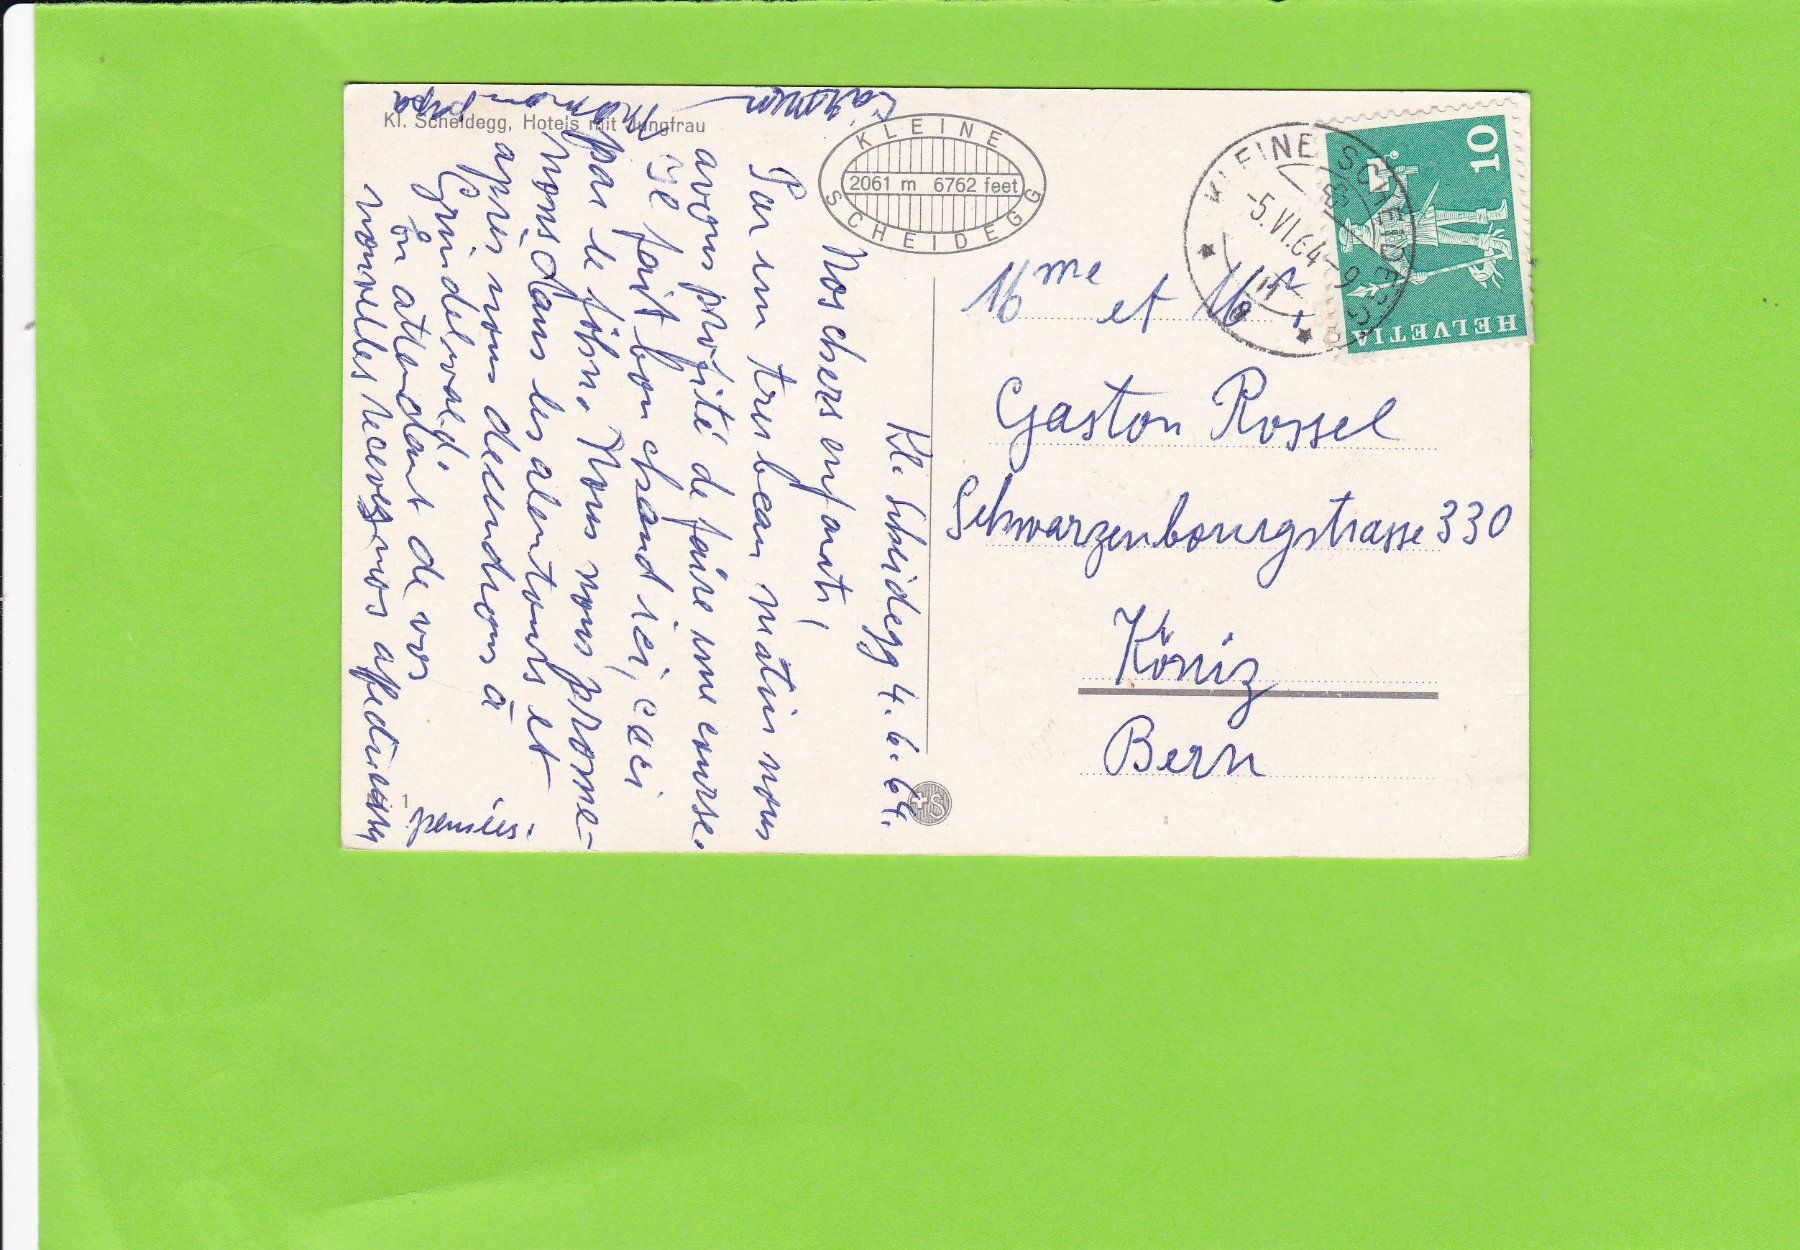 Kl. Scheidegg, Hotels mit Jungfrau
KLEINE
2061 m 6762 feet
SCHEIDEGG
Kl. Scheidegg 4.6.64.
Nos chers enfants,
Par un tres beau matin nous
avons profité de faire une course.
Il fait bon chaud ici, ceci
par le föhn. Nous nous prome-
nons dans les alentours et
apres nous descendrons à
Grindelwald.
En attendant de vos
nouvelles recevez nos affectueuses
pensées.
maman papa
1
+S
KLEINE SCHEIDEGG
-5.VI.64-9
10
HELVETIA
Mme et Mr
Gaston Rossel
Schwarzenbourgstrasse 330
Köniz
Bern